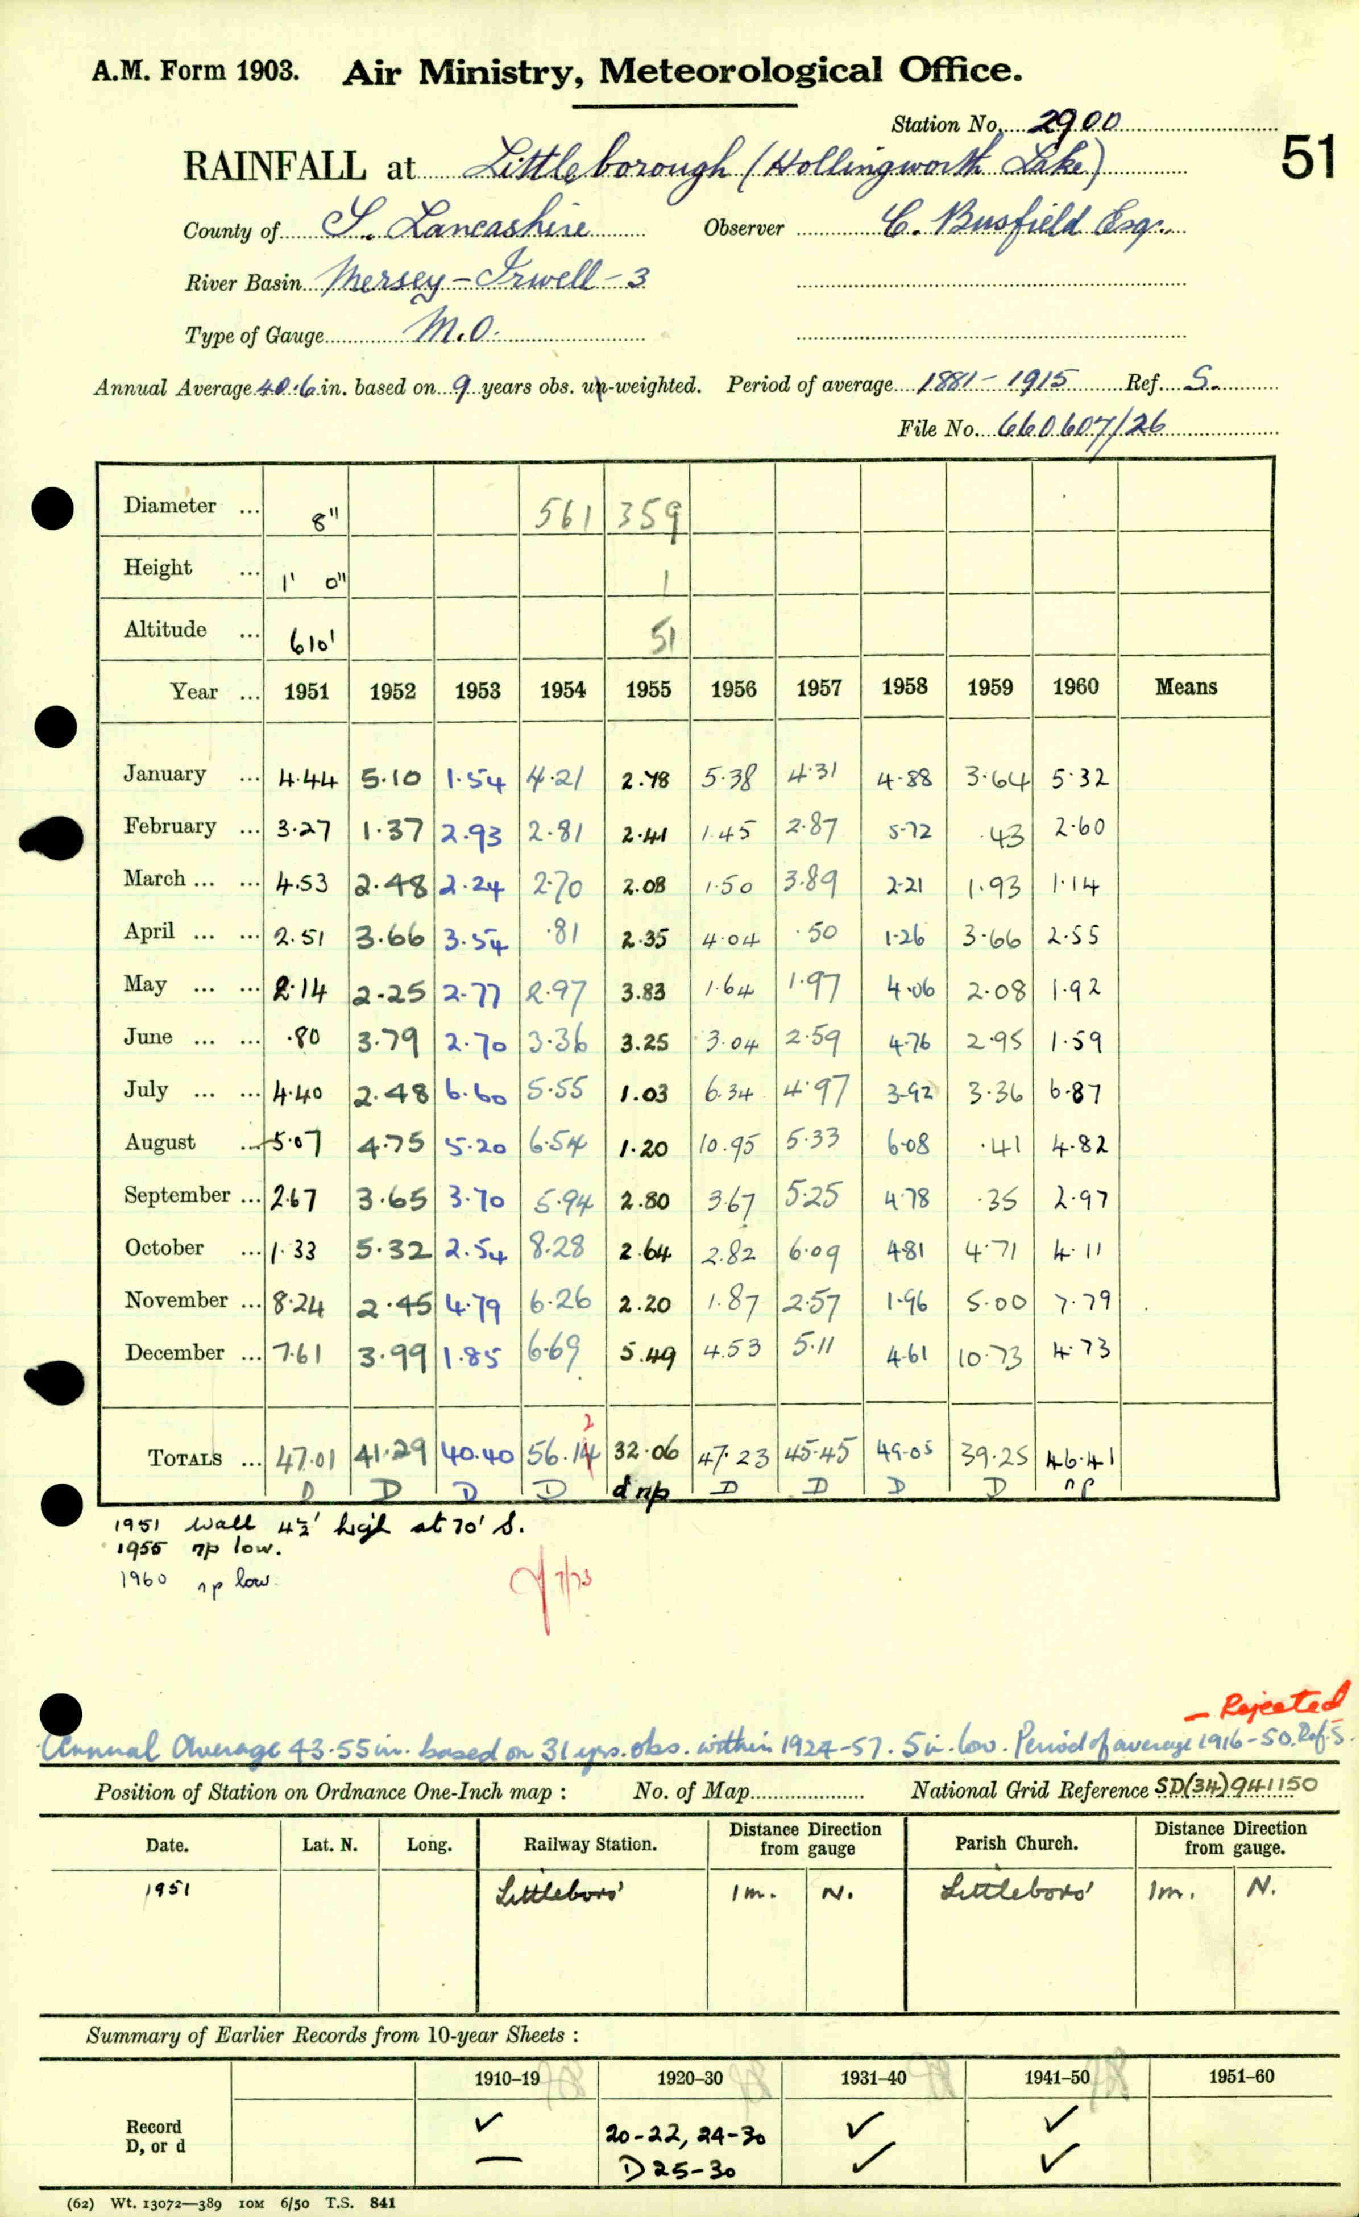 A.M. Form 1903. Air Ministry, Meteorological Office.
Station No. 2900
51
RAINFALL at Littleborough (Hollingworth Lake)
County of S. Lancashire Observer C. Busfield Esq.
River Basin Mersey - Irwell - 3
Type of Gauge M.O.
Annual Average 40.6 in. based on 9 years obs. un-weighted. Period of average 1881 - 1915 Ref. S.
File No. 660607/26
Diameter ... 8" 561 359
Height ... 1' 0" 1
Altitude ... 610' 51
Year ... 1951 1952 1953 1954 1955 1956 1957 1958 1959 1960 Means
January ... 4.44 5.10 1.54 4.21 2.78 5.38 4.31 4.88 3.64 5.32
February ... 3.27 1.37 2.93 2.81 2.41 1.45 2.87 5.72 .43 2.60
March ... ... 4.53 2.48 2.24 2.70 2.08 1.50 3.89 2.21 1.93 1.14
April ... ... 2.51 3.66 3.54 .81 2.35 4.04 .50 1.26 3.66 2.55
May ... ... 2.14 2.25 2.77 2.97 3.83 1.64 1.97 4.06 2.08 1.92
June ... ... .80 3.79 2.70 3.36 3.25 3.04 2.59 4.76 2.95 1.59
July ... ... 4.40 2.48 6.60 5.55 1.03 6.34 4.97 3.92 3.36 6.87
August ... 5.07 4.75 5.20 6.54 1.20 10.95 5.33 6.08 .41 4.82
September ... 2.67 3.65 3.70 5.94 2.80 3.67 5.25 4.78 .35 2.97
October ... 1.33 5.32 2.54 8.28 2.64 2.82 6.09 4.81 4.71 4.11
November ... 8.24 2.45 4.79 6.26 2.20 1.87 2.57 1.96 5.00 7.79
December ... 7.61 3.99 1.85 6.69 5.49 4.53 5.11 4.61 10.73 4.73
2
TOTALS ... 47.01 41.29 40.40 56.14 32.06 47.23 45.45 49.05 39.25 46.41
D D D D d np D D D D np
1951 Wall 4½' high at 70' S.
1955 np low.
1960 np low.
7/73
- Rejected
Annual Average 43.55 in. based on 31 yrs. obs. within 1924-57. 5 in. low. Period of average 1916-50. Ref. S.
Position of Station on Ordnance One-Inch map : No. of Map National Grid Reference SD(34)941150
Date. Lat. N. Long. Railway Station. Distance Direction from gauge Parish Church. Distance Direction from gauge.
1951 Littleboro' 1m. N. Littleboro' 1m. N.
Summary of Earlier Records from 10-year Sheets :
1910-19 1920-30 1931-40 1941-50 1951-60
Record ✓ 20-22, 24-30 ✓ ✓
D, or d — D 25-30 ✓ ✓
(62) Wt. 13072—389 10M 6/50 T.S. 841